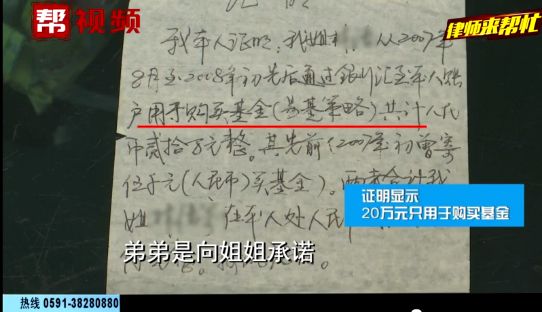 帮视频
律师来帮忙
证明
我本人证明,我姐 从2007年
8月至2008年初先后通过银行汇至本人账
户用于购买基金(易基策略)共计人民
币贰拾万元整。其先前(2007年初曾寄
伍千元(人民币)买基金)。两者合计我
姐 在本人处人民
证明显示
20万元只用于购买基金
弟弟是向姐姐承诺
热线 0591-38280880